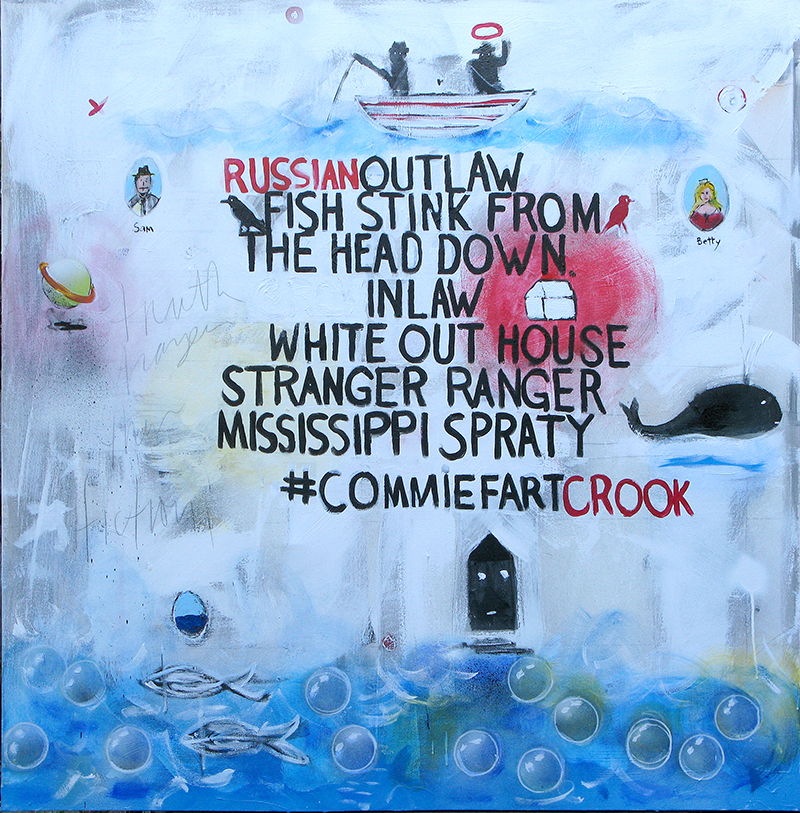 RUSSIANOUTLAW
FISH STINK FROM
THE HEAD DOWN.
INLAW
WHITE OUT HOUSE
STRANGER RANGER
MISSISSIPPI SPRATY
#COMMIEFARTCROOK
Sam
Betty
truth
fiction